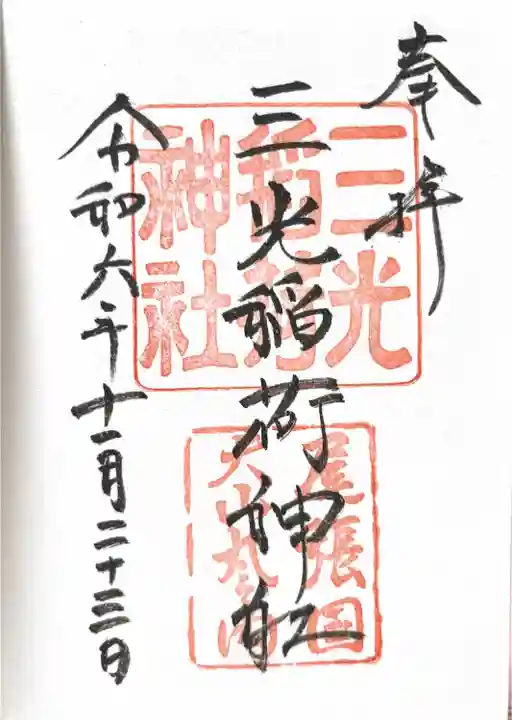 奉拝
三光稲荷神社
三光稲荷神社
尾張国犬山丸の内
令和六年十一月二十三日